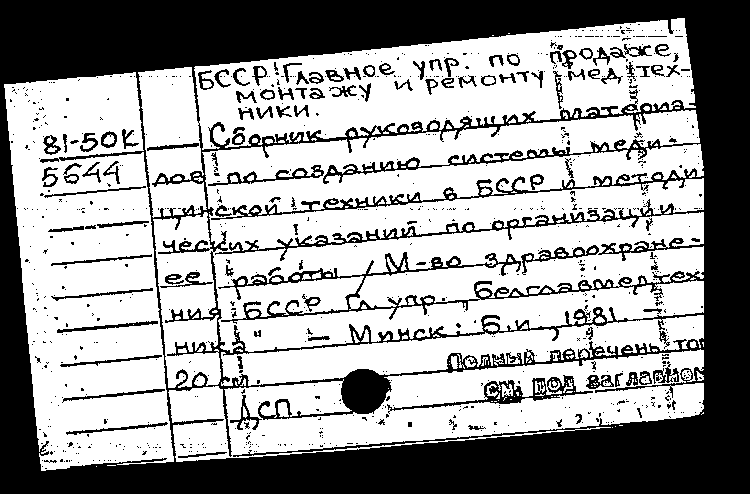 БССР. Главное упр. по продаже,
монтажу и ремонту мед. тех-
ники.
81-50К
Сборник руководящих материа-
5644
лов по созданию системы меди-
цинской техники в БССР и методи
ческих указаний по организации
ее работы / М-во здравоохране-
ния БССР. Гл. упр. „Белглавмедтех
ника". – Минск: Б.и., 1981. –
20 см.
Полный перечень то
см. под заглавием
ДСП.